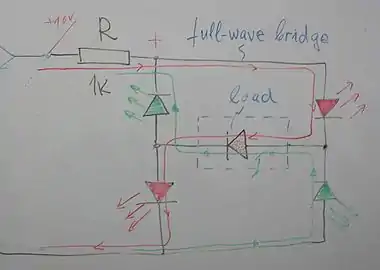 R
+
full-wave bridge
1K
load